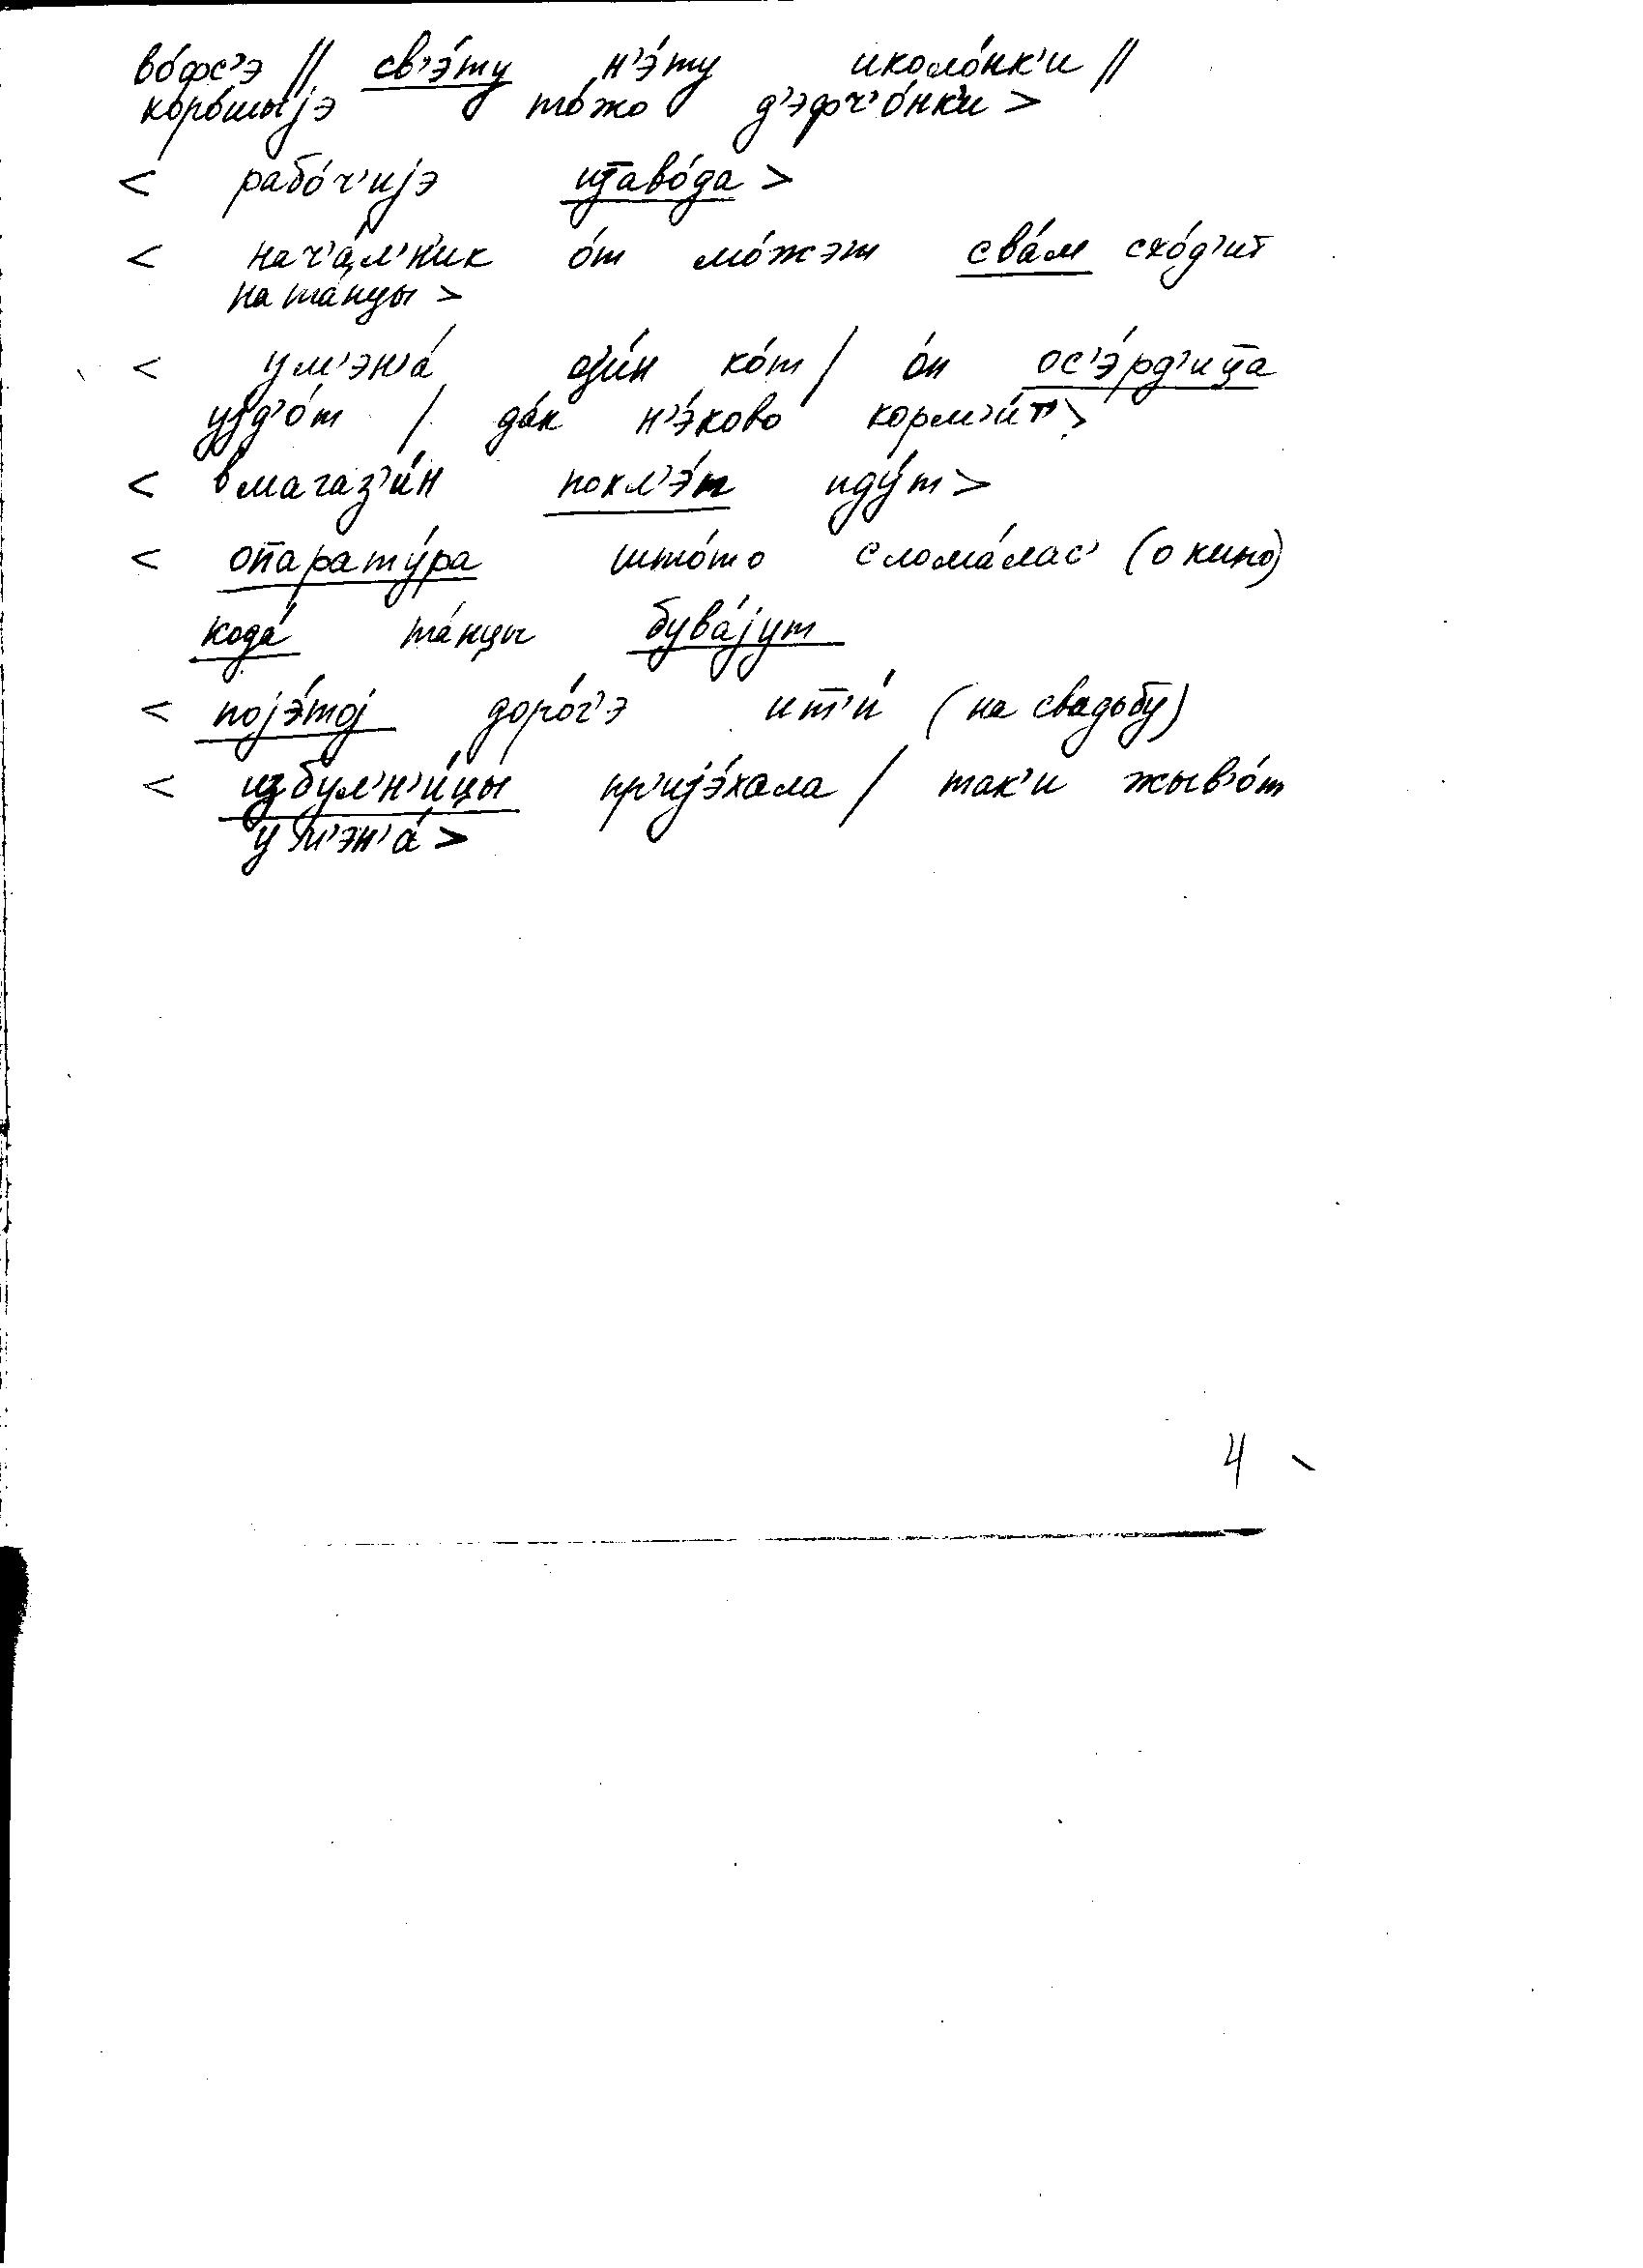 во́фс’э // св’э́ту н’э́ту иколо́нк’и //
хоро́шыjэ то́жо д’эфч’о́нк’и >
< рабо́ч’иjэ изаво́да >
< нач’а́л’н’ик о́т мо́жэт сва́м схо́д’ит
на та́нцы >
< ум’эн’а́ од’и́н ко́т / о́н ос’э́рд’ица
уjд’о́т / да́к н’э́ково корм’и́т’ >
< вмагаз’и́н похл’э́п иду́т >
< опарату́ра што́то слома́лас’ (о кино)
кода́ та́нцы бува́jут
< поjэ́тоj доро́г’э ит’и́ (на свадьбу)
< избул’н’и́цы пр’иjэ́хала / так’и жыв’о́т
у м’эн’а́ >
4